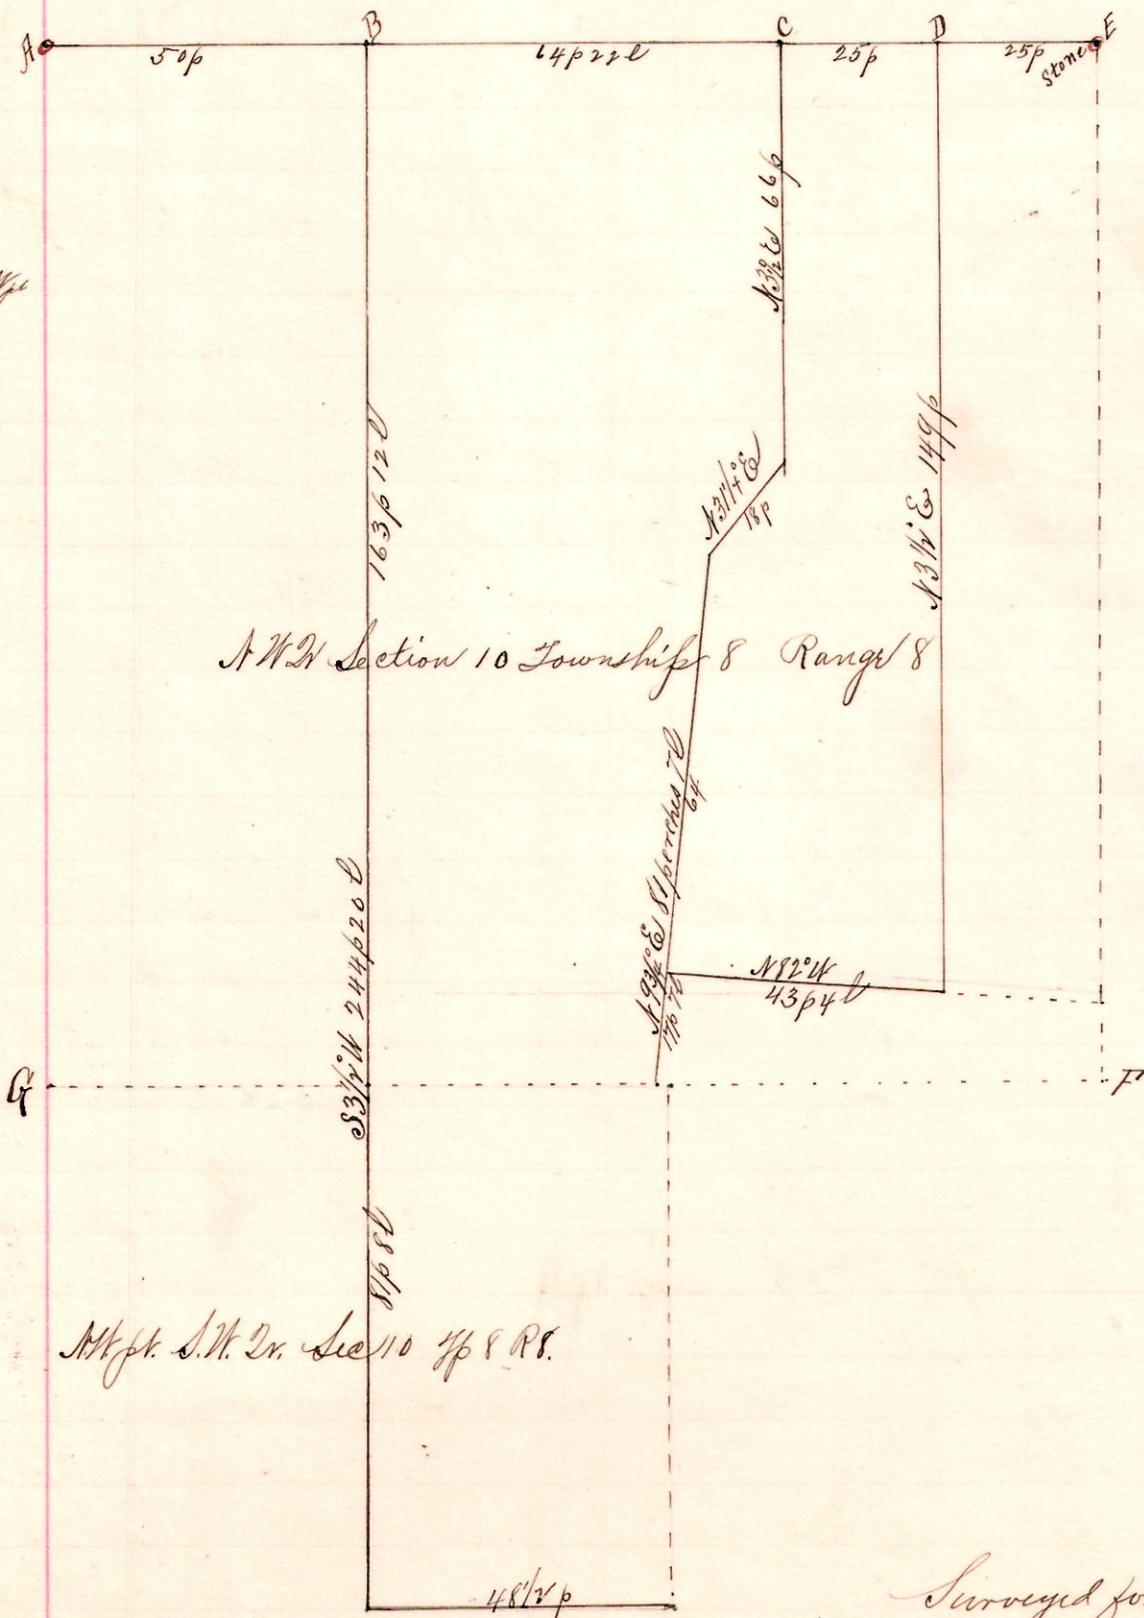 A B C D E
50p 64p22l 25p 25p
Stone
N3½°E 66p
163p 12l
N31¼°E
18p
N3½°E 149p
N W Qr Section 10 Township 8 Range 8
N9¾°E 81perches 7l
64
17p 7l
N82°W
43p4l
S3½°W 244p20l
G F
81p 8l
N.W. pt. S.W. Qr. Sec 10 Tp 8 R8.
48½ p
Surveyed fo